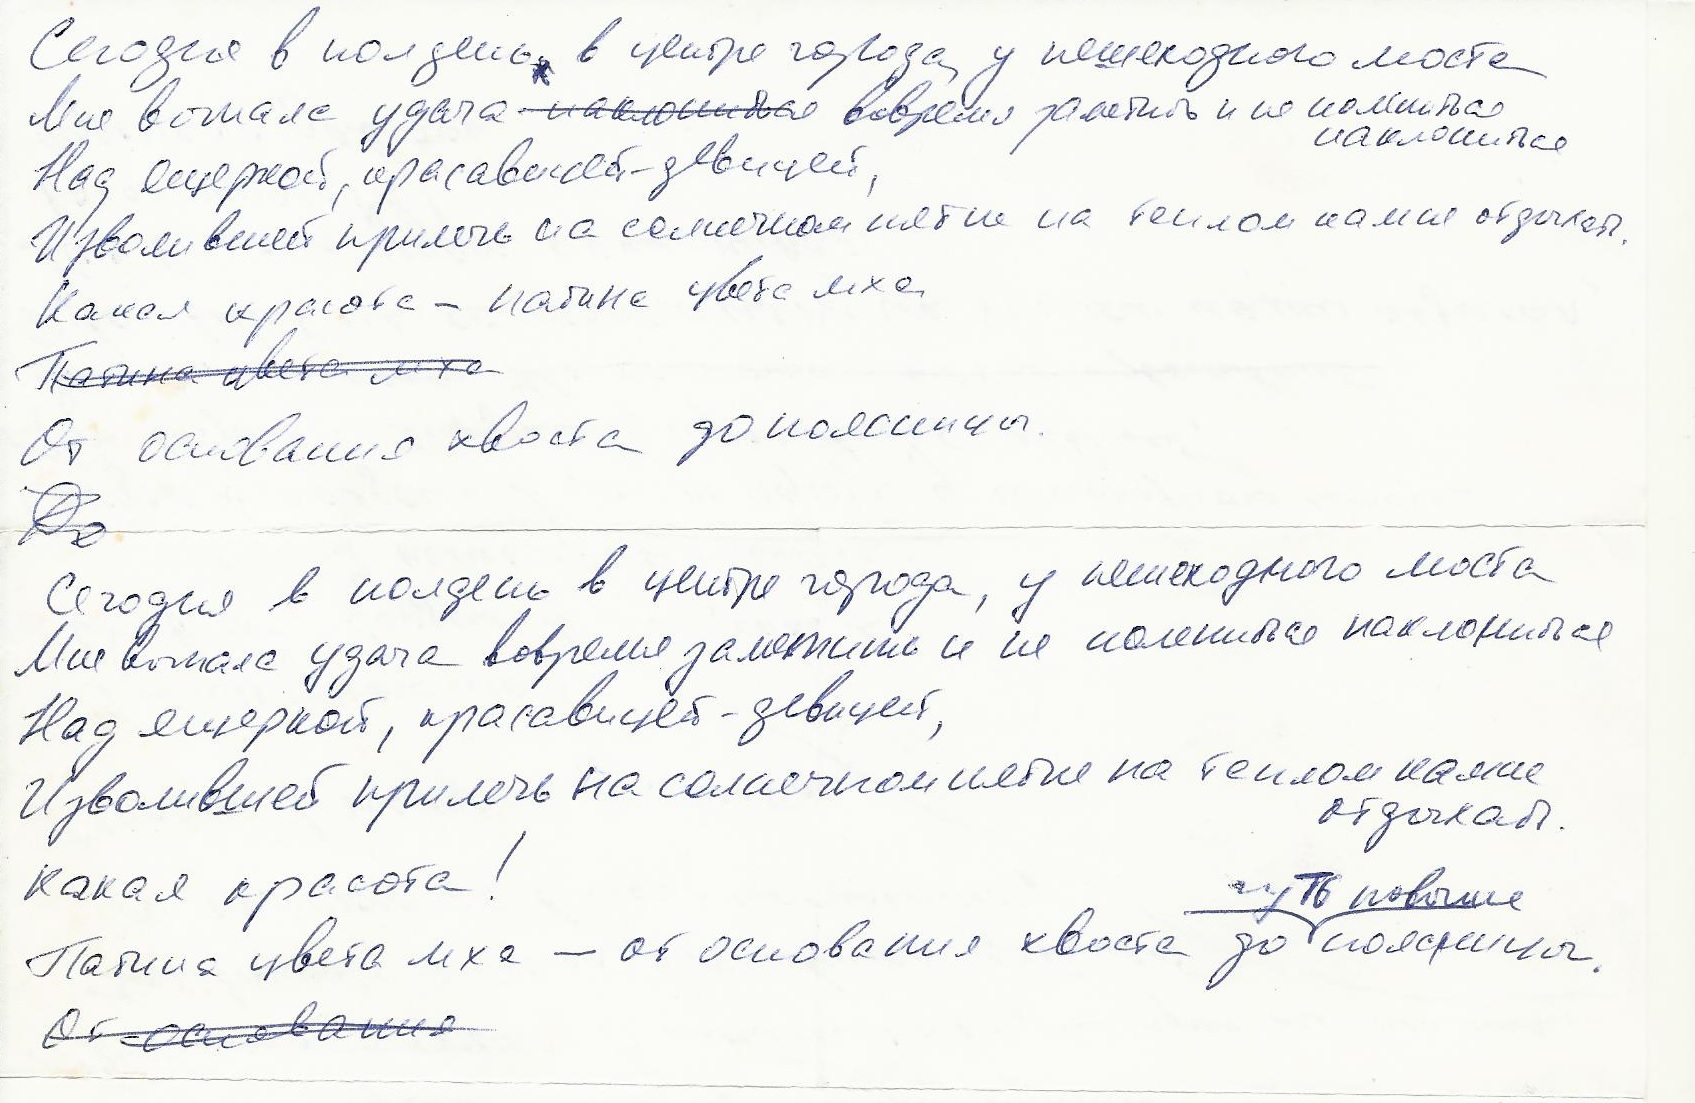 Сегодня в полдень в центре города, у пешеходного моста
Мне выпала удача наклониться вовремя заметить и не полениться
наклониться
Над ящеркой, красавицей-девицей,
Изволившей прилечь на солнечном пятне на теплом камне отдыхать.
Какая красота – патина цвета мха
Патина цвета мха
От основания хвоста до поясницы.
До
Сегодня в полдень в центре города, у пешеходного моста
Мне выпала удача вовремя заметить и не полениться наклониться
Над ящеркой, красавицей-девицей,
Изволившей прилечь на солнечном пятне на теплом камне
отдыхать.
Какая красота!
чуть повыше
Патина цвета мха – от основания хвоста до поясницы.
От основания